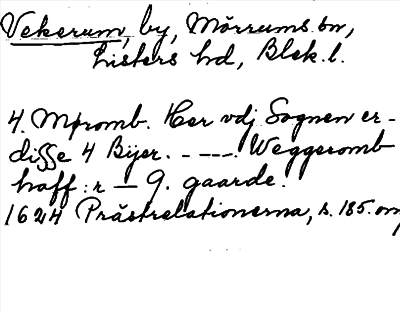 Vekerum, by, Mörrums sn,
Listers hd, Blek. l.
4. Mpromb. Her vdj Sognen er-
disse 4 Bÿer. - ---. Weggeromb
haff: r — 9. gaarde.
1624 Prästrelationerna, s. 185. om